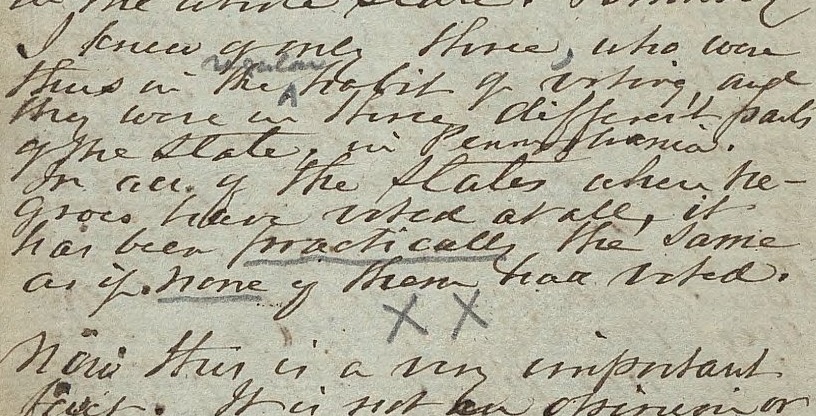 in the whole State.
I knew of only three, who were
regular
thus in the habit of voting, and
they were in three different parts
of the State, in Pennsylvania.
In all of the States where ne-
groes have voted at all, it
has been practically the same
as if none of them had voted.
X X
Now this is a very important
fact. It is not an opinion or